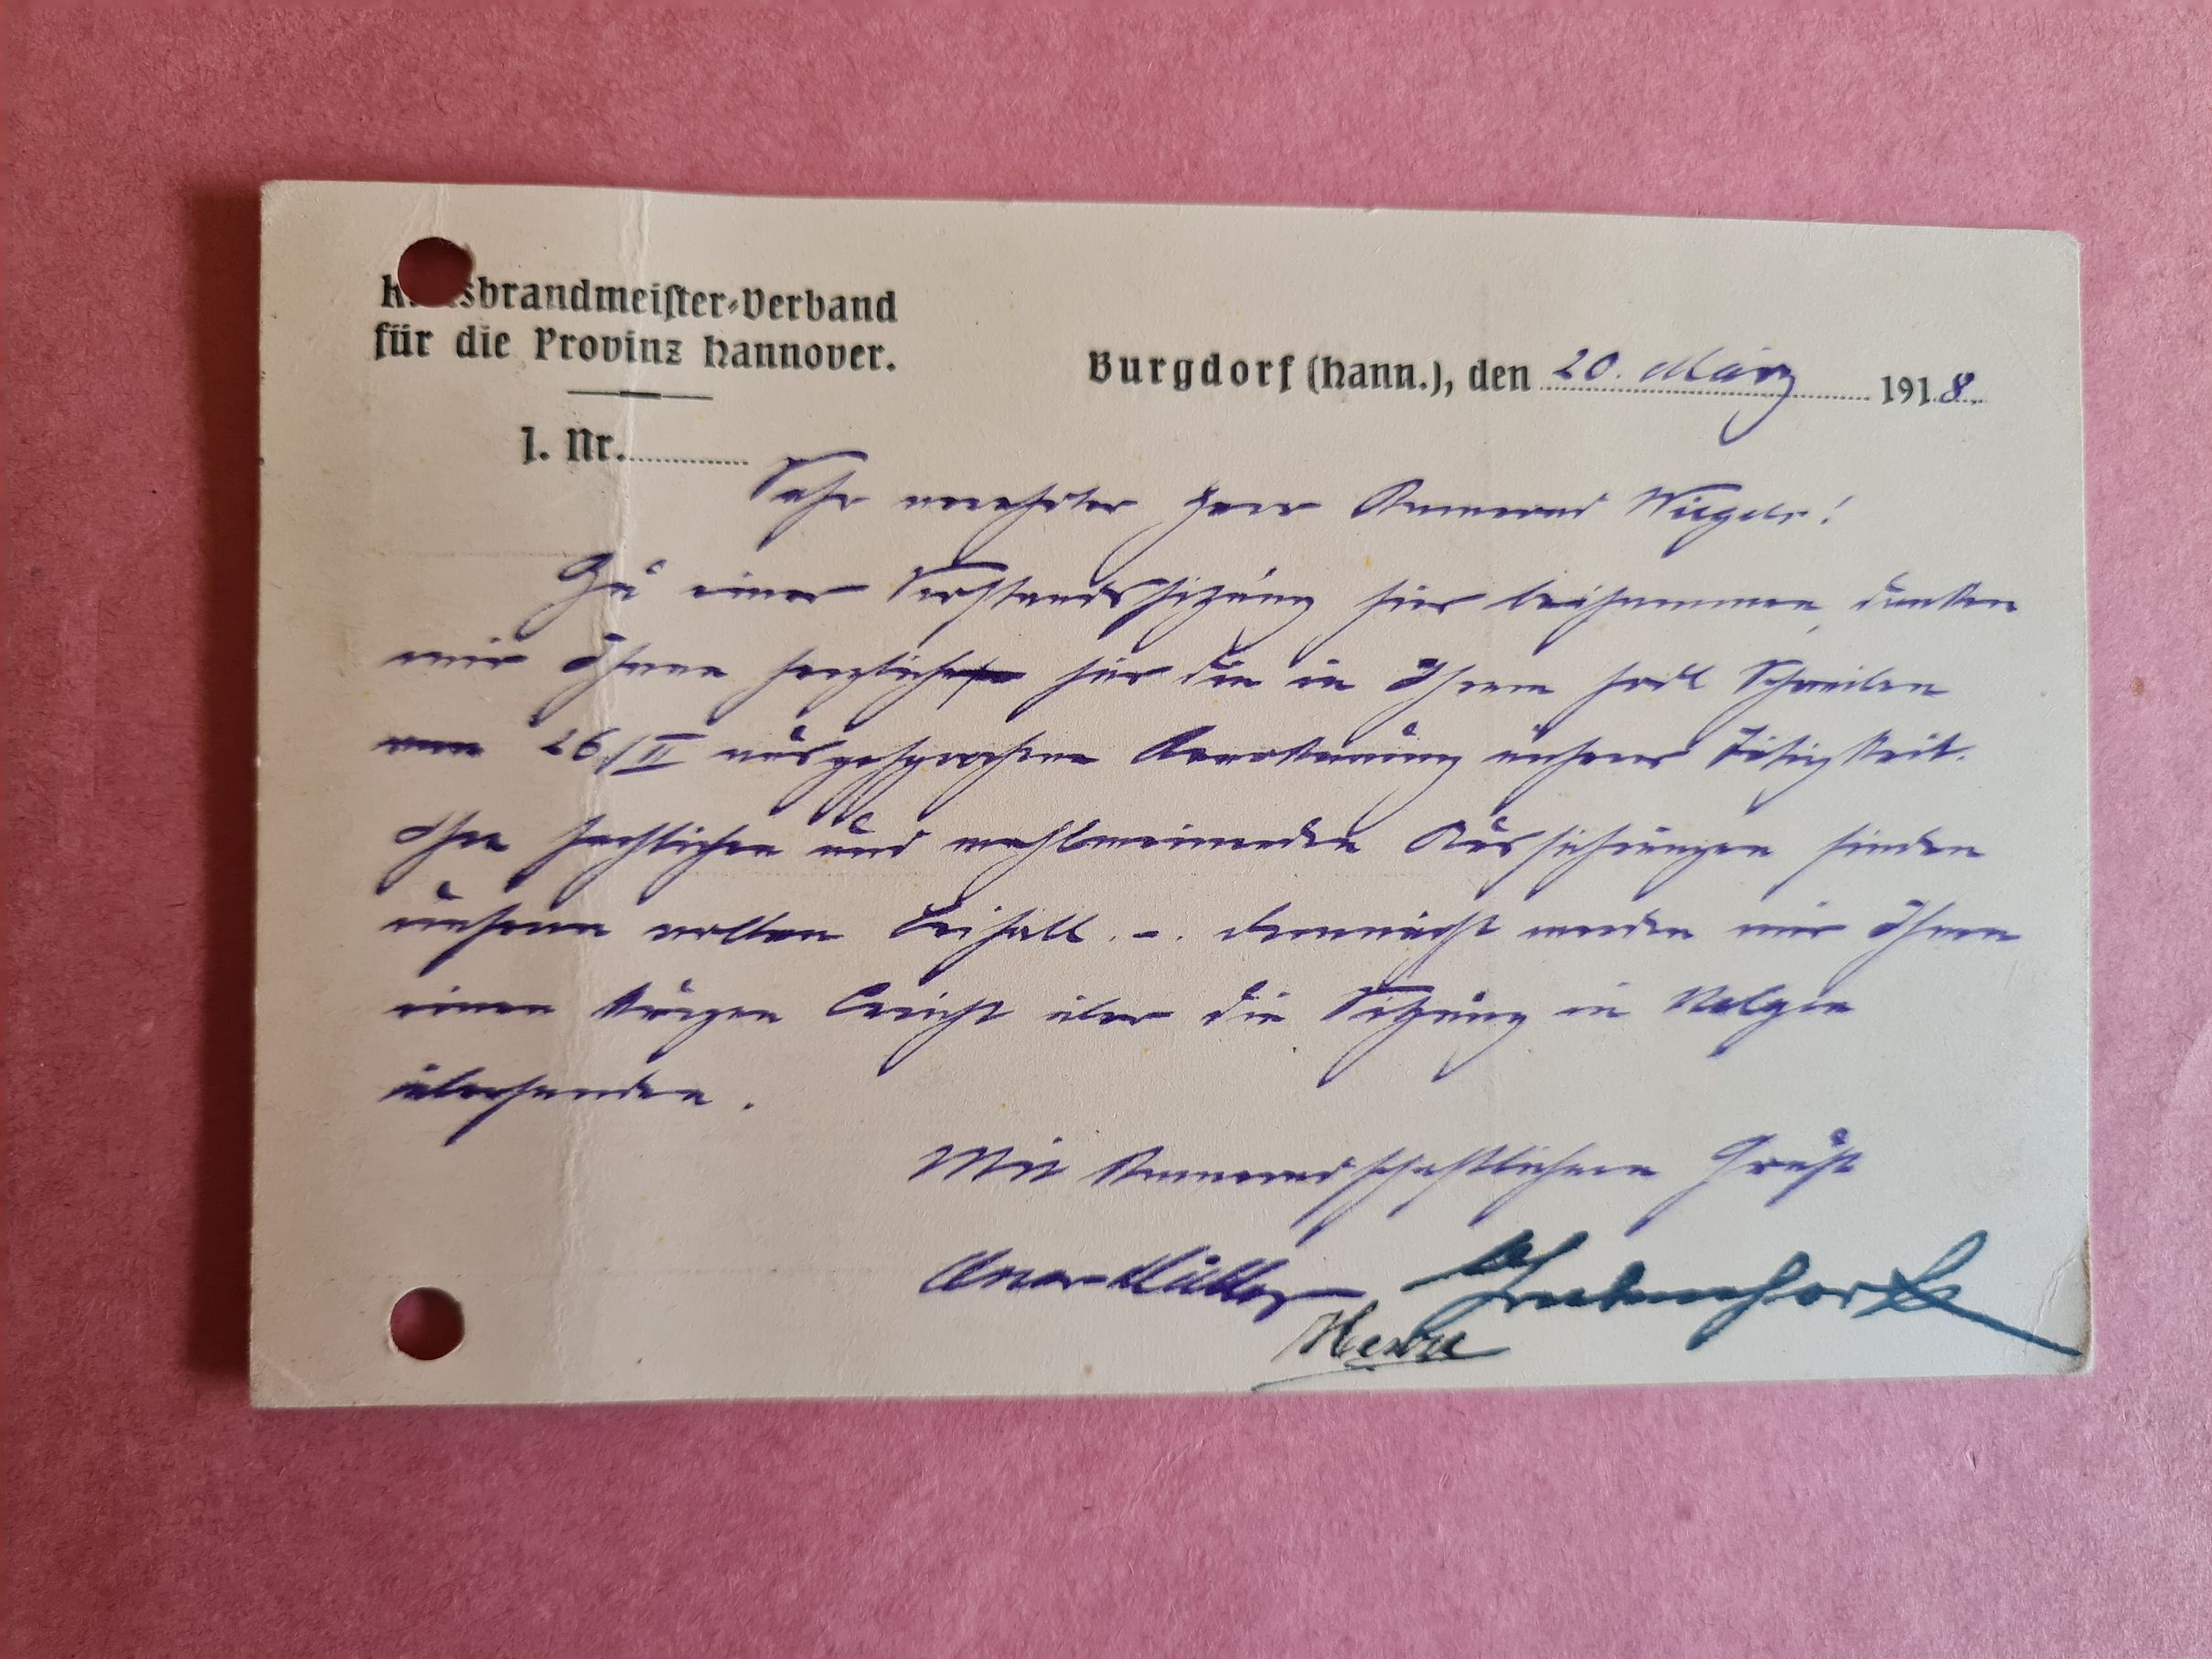 Kreisbrandmeister-Verband
für die Provinz Hannover.
Burgdorf (Hann.), den 20. März 1918.
J. Nr.
Sehr verehrter Herr Kamerad Wiegels!
Zu einer Vorstandssitzung hier beisammen, danken
wir Ihnen herzlichst für die in Ihrem ftdl Schreiben
vom 26/II ausgesprochene Anerkennung unserer Tätigkeit.
Ihre sachlichen und wohlmeinenden Ausführungen finden
unseren vollen Beifall. -. Demnächst werden wir Ihnen
einen kurzen Bericht über die Sitzung in
übersenden.
Mit kameradschaftlichem Gruß
Müller